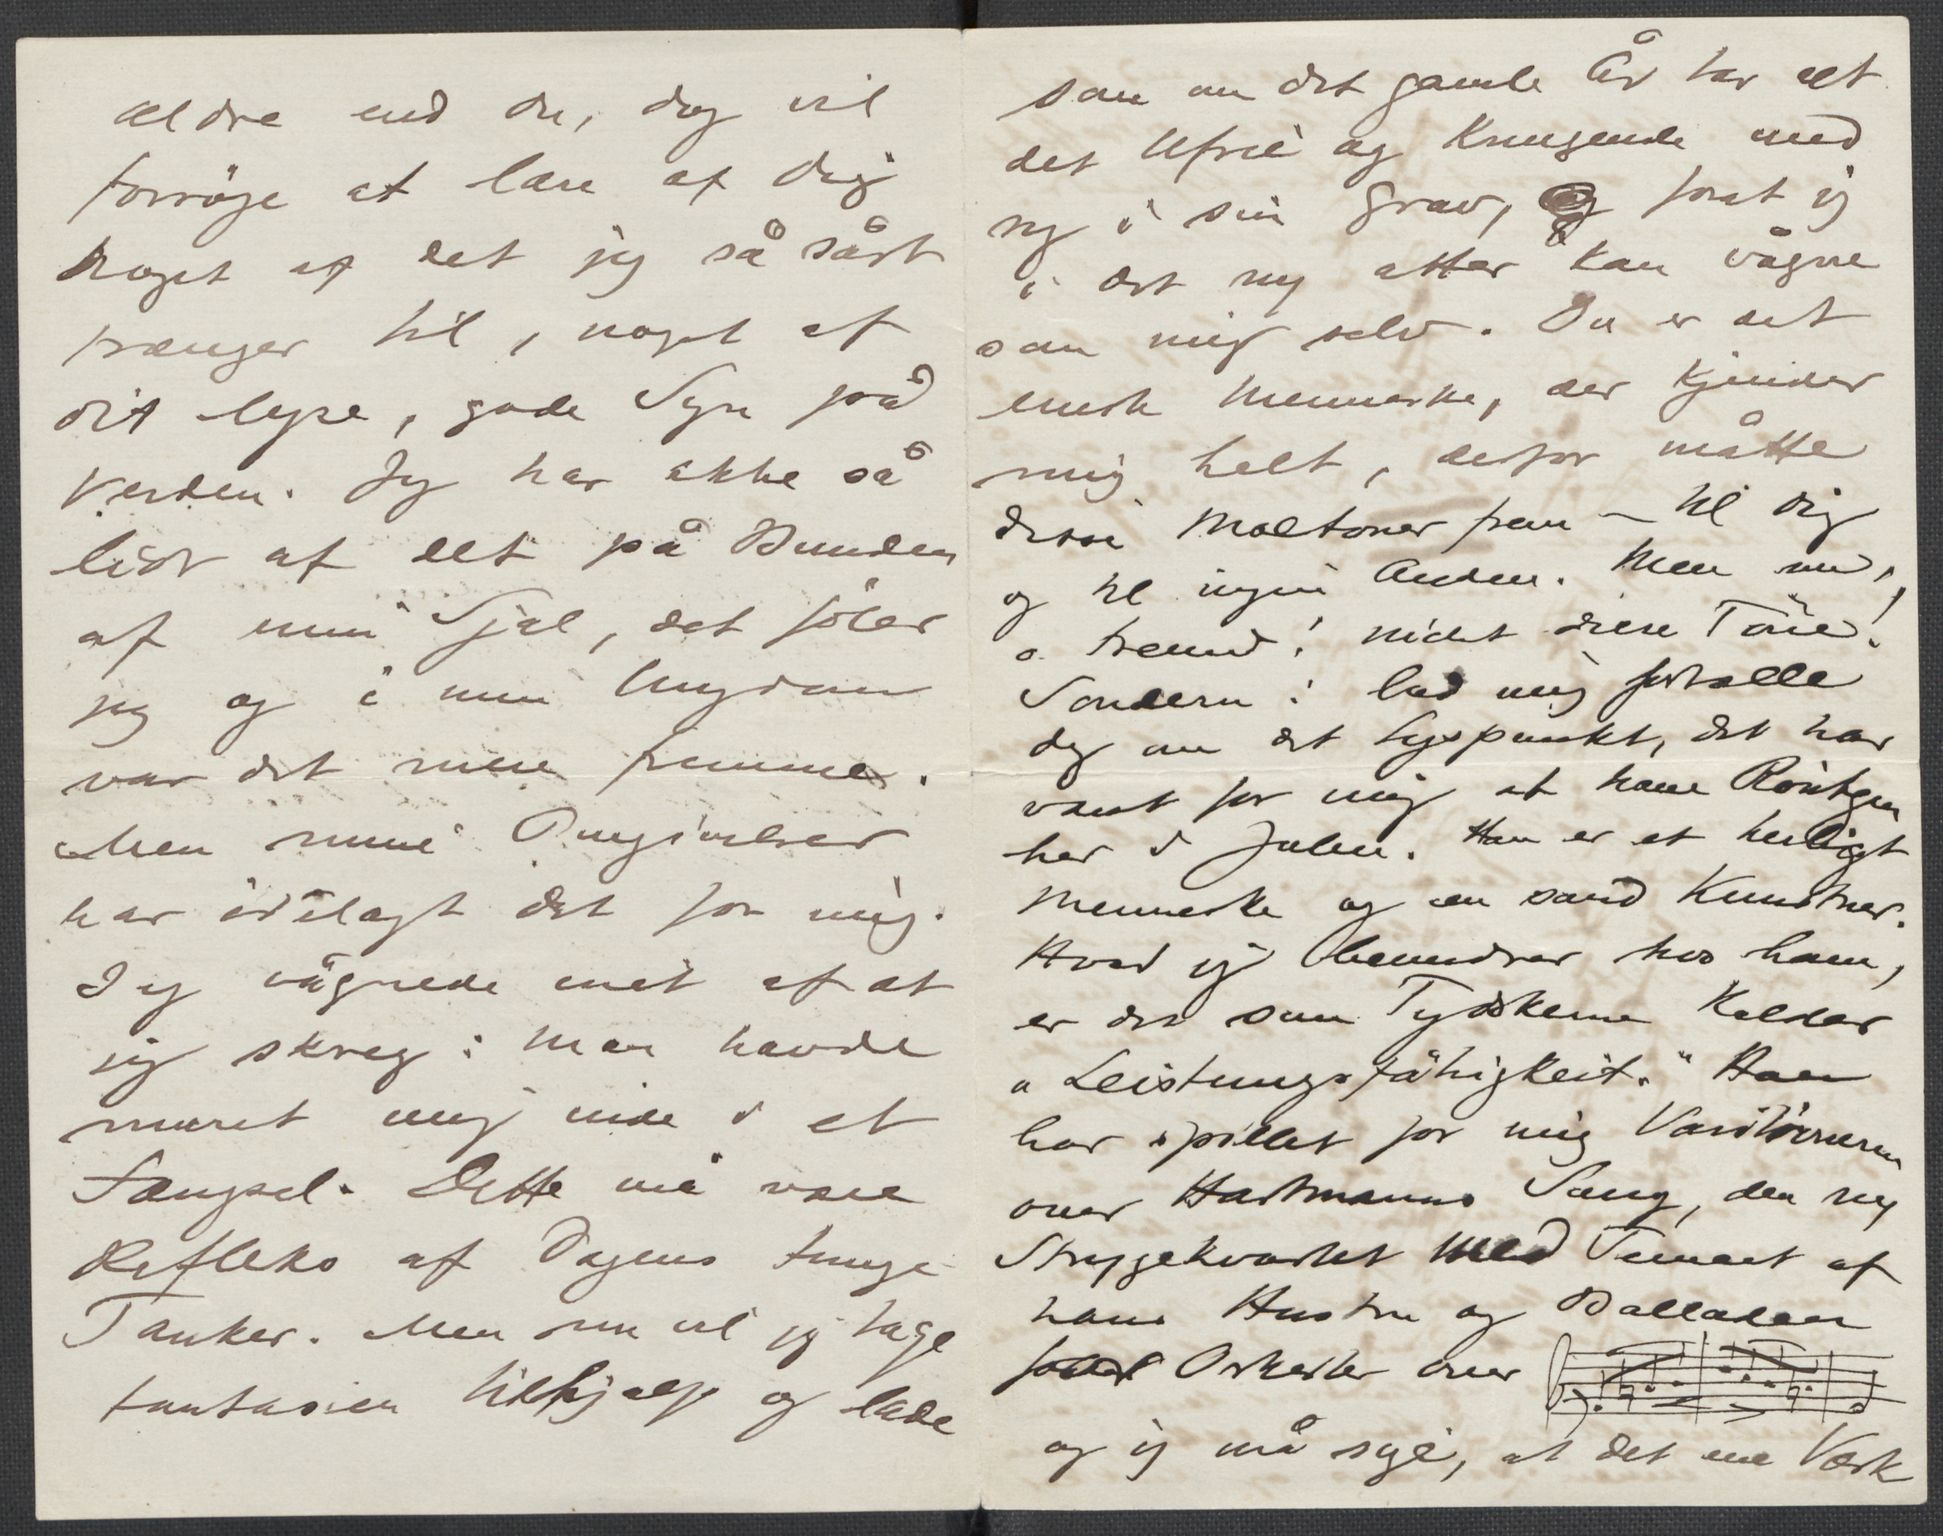 ældre end du, dog vil
forsöge at lære af dig
Noget af det jeg så sårt
trænger til, noget af
dit lyse, gode Syn på
Verden. Jeg har ikke så
lidt af det på Bunden
af min Sjæl, det föler
jeg og i min Ungdom
var det mere fremme.
Men mine Omgivelser
har ödelagt det for mig.
Jeg vågnede inat af at
jeg skreg: Man havde
muret mig inde i et
Fængsel. Dette må være
Refleks af Dagens tunge
Tanker. Men nu vil jeg tage
Fantasien tilhjælp og lade
som om det gamle År tar alt
det Ufrie og Knugende med
sig i sin Grav, forat jeg
i det ny atter kan vågne
som mig selv. Du er det
eneste Menneske, der kjender
mig helt, derfor måtte
disse Moltoner frem – til dig
og til ingen Anden. Men nu,
o Freund! nicht diese Töne!
Sondern: lad mig fortælle
dig om det Lyspunkt, det har
været for mig at have Röntgen
her i Julen. Han er et herligt
Menneske og en sand Kunstner.
Hvad jeg beundrer hos ham,
er det som Tydskerne kalder
"Leistungsfähigkeit." Han
har spillet for mig Variationerne
over Hartmanns Sang, den ny
Strygekvartet med Temaet af
hans Hustru og Balladen
for Orkester over
og jeg må sige, at det ene Værk